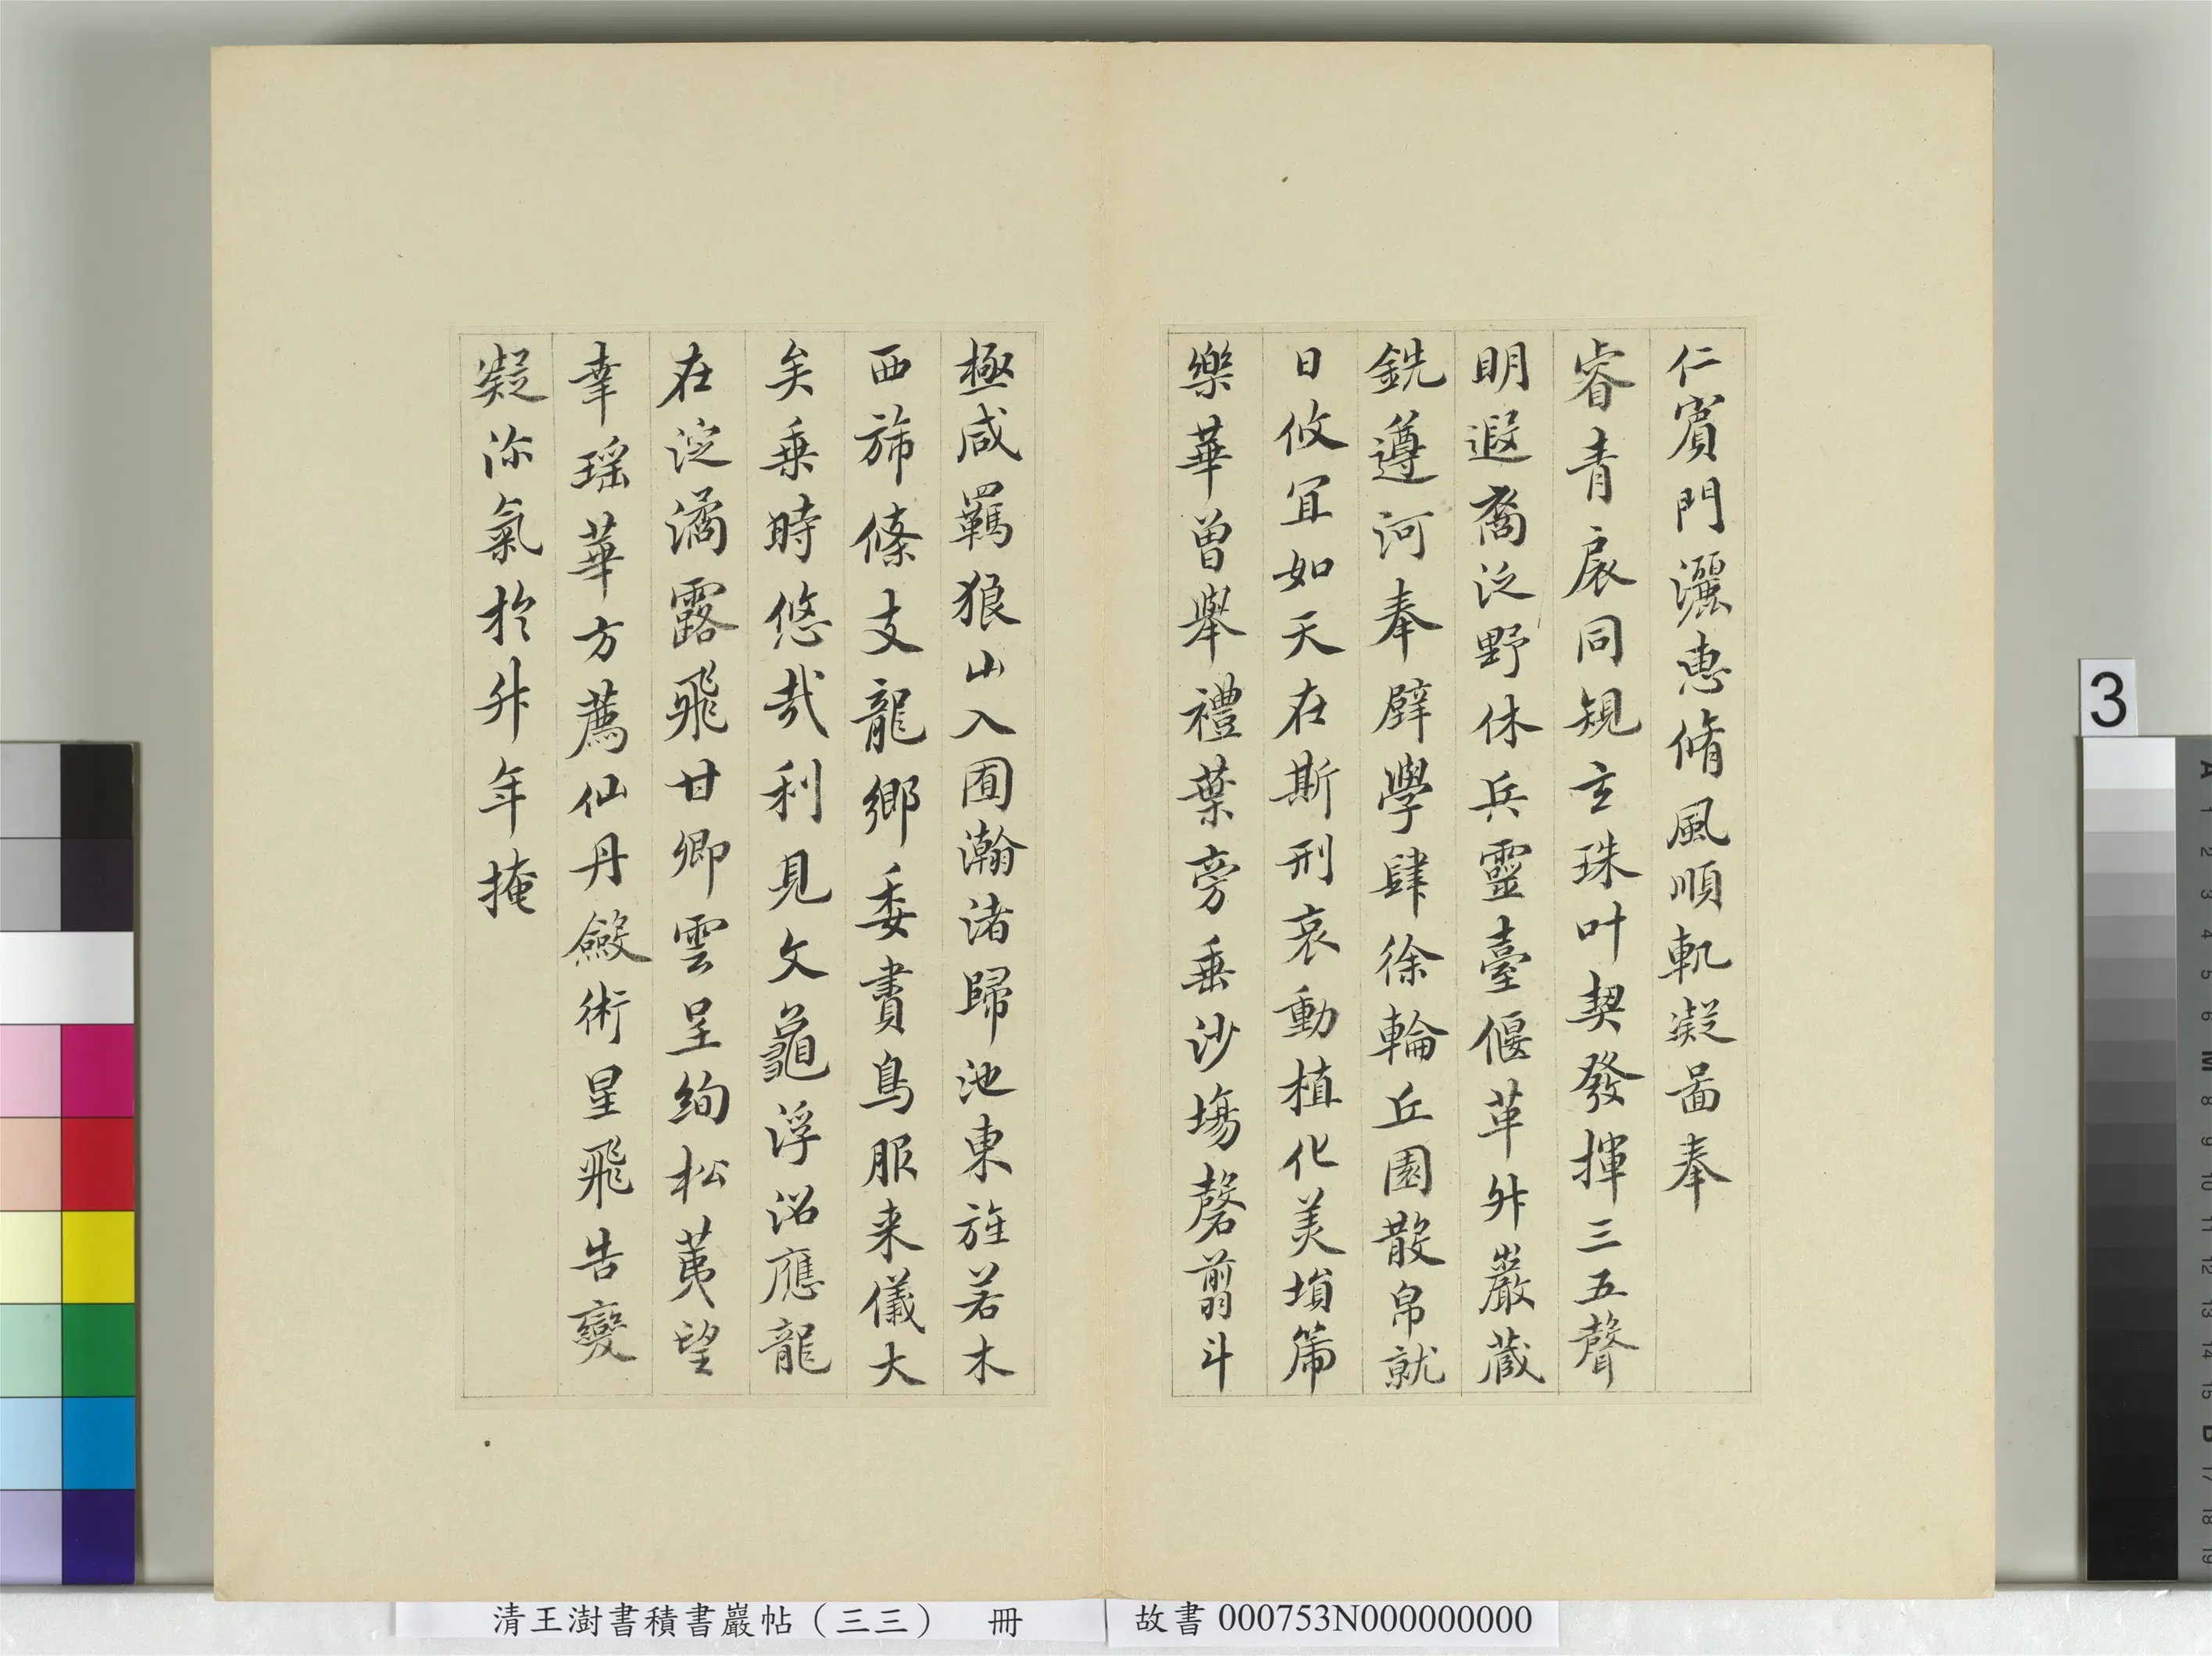 仁賓門灑惠脩風順軌凝啚奉
睿青扆同規玄珠叶契發揮三五聲
明遐裔泛野休兵靈臺偃革舛巖藏
銑遵河奉璧學肆徐輪丘園散帛就
日攸冝如天在斯刑哀動植化美塤篪
樂華曽舉禮葉旁垂沙塲罄翦斗
極咸羈狼山入囿瀚渚歸池東旌若木
西斾條支龍鄉委賮鳥服来儀大
矣乗時悠哉利見文龜浮沼應龍
在淀潏露飛甘卿雲呈絢松荑望
幸瑶華方薦仙丹斂術星飛告變
凝沴氣於舛年掩
清王澍書積書巖帖（三三） 冊
故書 000753N000000000
3